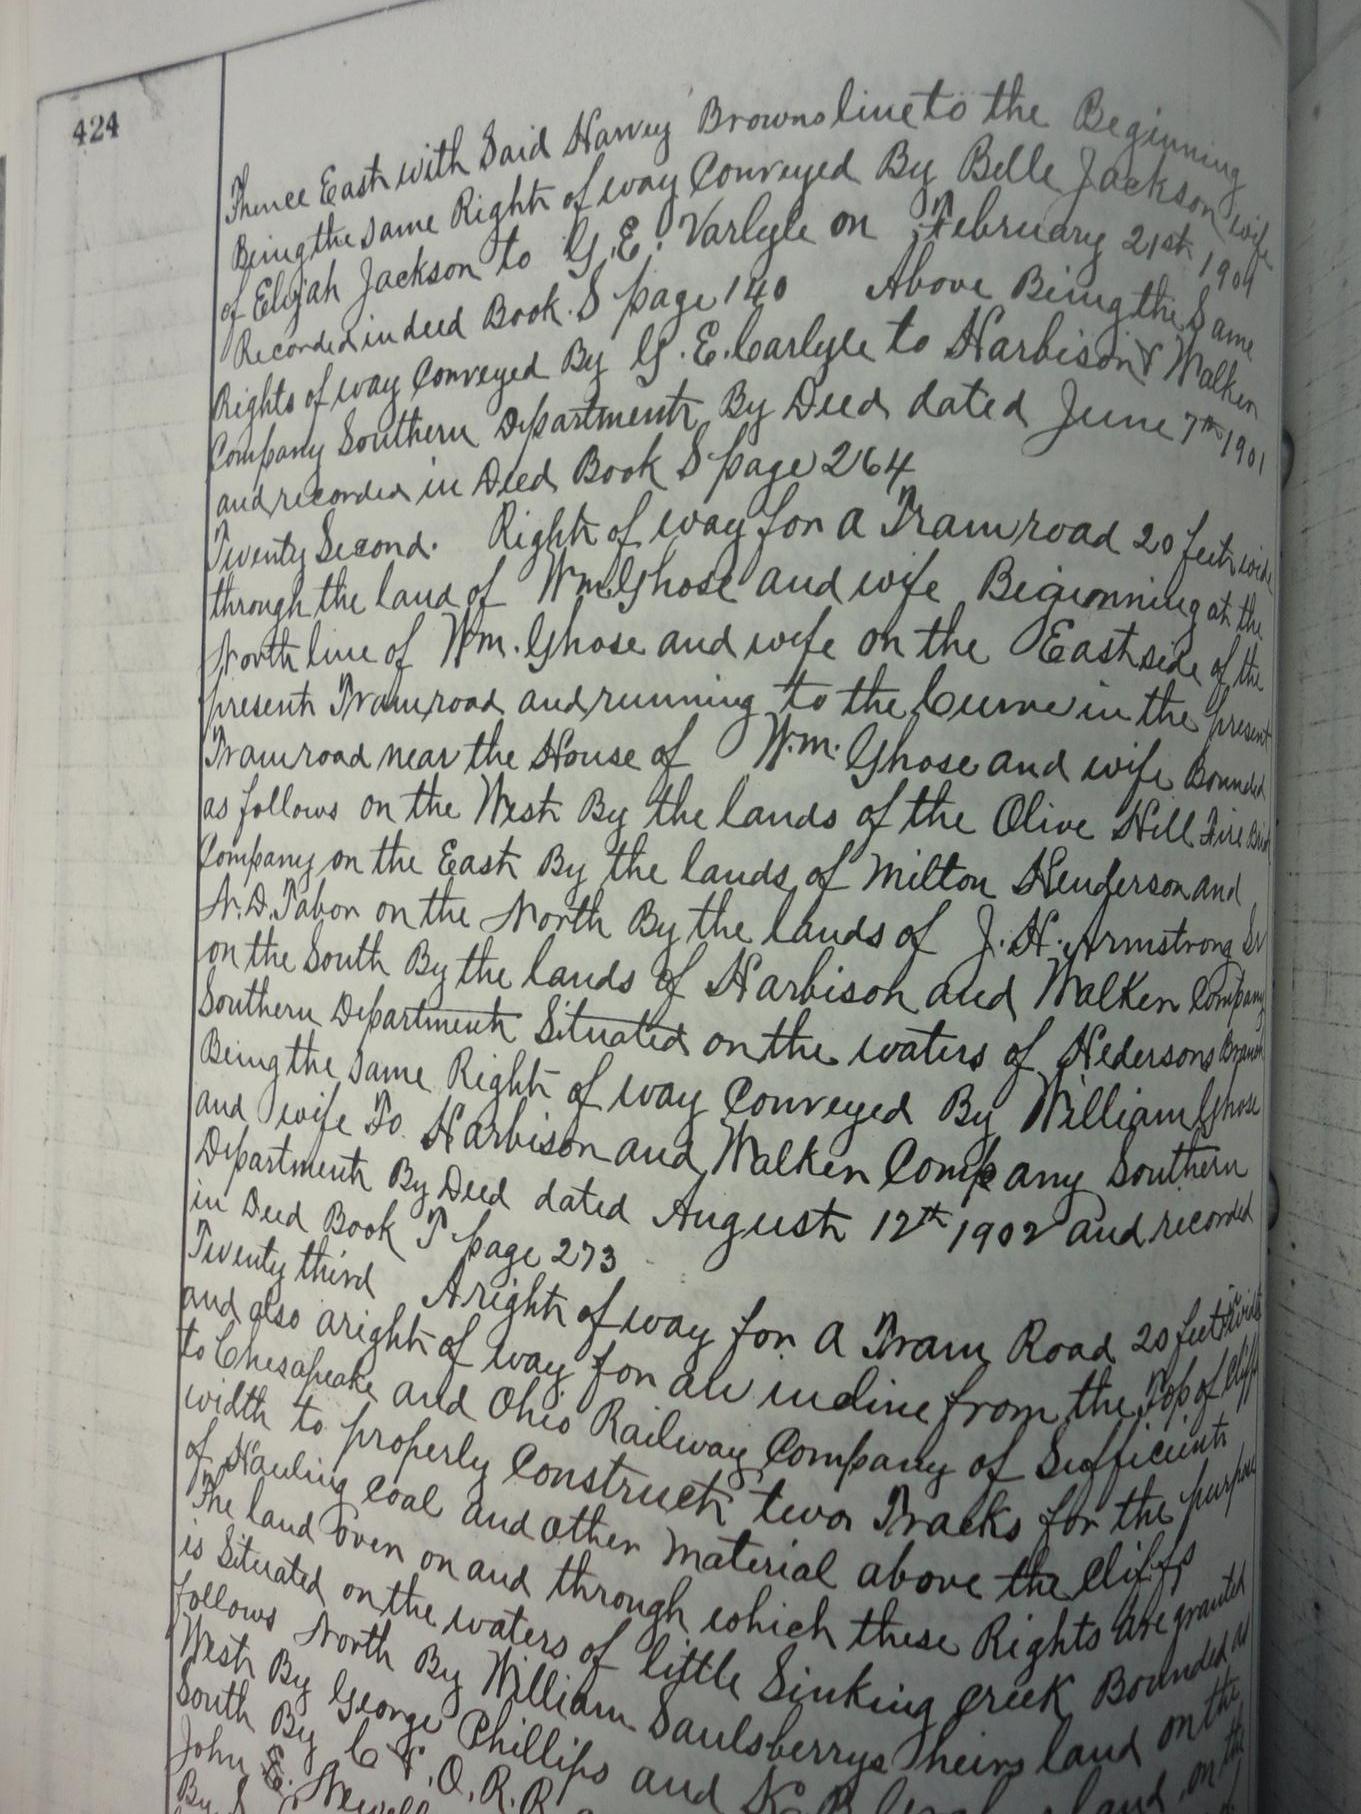 424
Thence East with Said Harvey Browns line to the Beginning
Being the Same Right of way Conveyed By Belle Jackson wife
of Elijah Jackson to G. E. Varlyle on February 21st 1901
Recorded in deed Book S page 140 Above Being the Same
Rights of way Conveyed By G. E. Carlyle to Harbison & Walker
Company Southern Department By Deed dated June 7th 1901
and recorded in Deed Book S page 264
Twenty Second. Right of way for a Tram road 20 feet wide
through the land of Wm. Ghose and wife Beginning at the
North line of Wm. Ghose and wife on the East side of the
present Tram road and running to the Curve in the present
Tram road near the House of Wm. Ghose and wife Bounded
as follows on the West By the lands of the Olive Hill Fire Brick
Company on the East By the lands of Milton Henderson and
N. D. Tabor on the North By the lands of J. H. Armstrong Sr
on the South By the lands of Harbison and Walker Company
Southern Department Situated on the waters of Hedersons Branch
Being the Same Right of way Conveyed By William Ghose
and wife To Harbison and Walker Company Southern
Department By Deed dated August 12th 1902 and recorded
in Deed Book T page 273
Twenty third A right of way for a Tram Road 20 feet wide
and also a right of way for an incline from the Top of Cliff
to Chesapeake and Ohio Railway Company of Sufficient
width to properly Construct two Tracks for the purpose
of Hauling Coal and other Material above the Cliffs
The land over on and through which these Rights are granted
is Situated on the waters of little Sinking Creek Bounded as
follows North By William Saulsberrys heirs land on the
West By George Phillips and land on the
South By C & O. R. R.
John E. Newell
By